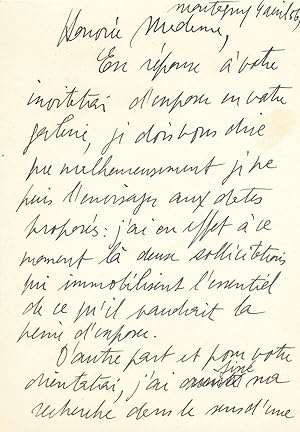 montegny 4 avril 56
Honorée Madame,
En réponse à votre
invitation d'exposer en votre
galerie, je dois vous dire
que malheureusement je ne
puis l'envisager aux dates
proposés : j'ai en effet à ce
moment là deux sollicitations
qui immobilisent l'essentiel
de ce qu'il vaudrait la
peine d'exposer.
D'autre part et pour votre
orientation, j'ai axé ma
recherche dans le sens d'une